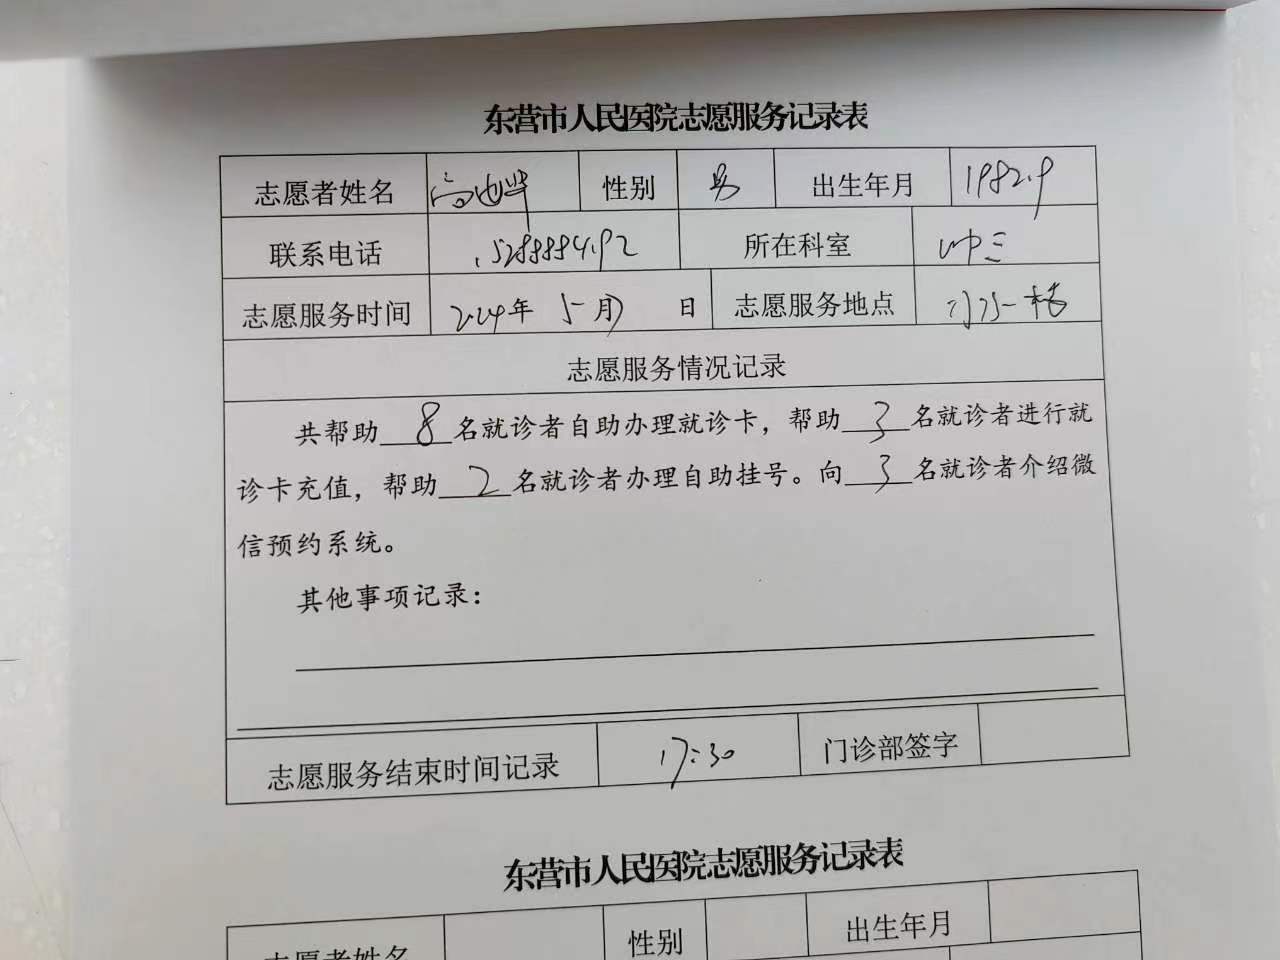 东营市人民医院志愿服务记录表
志愿者姓名 性别 男 出生年月 1982.9
联系电话 所在科室
志愿服务时间 2024年 5月 日 志愿服务地点 门诊一楼
志愿服务情况记录
共帮助 8 名就诊者自助办理就诊卡，帮助 3 名就诊者进行就
诊卡充值，帮助 2 名就诊者办理自助挂号。向 3 名就诊者介绍微
信预约系统。
其他事项记录：
志愿服务结束时间记录 17:30 门诊部签字
东营市人民医院志愿服务记录表
志愿者姓名 性别 出生年月